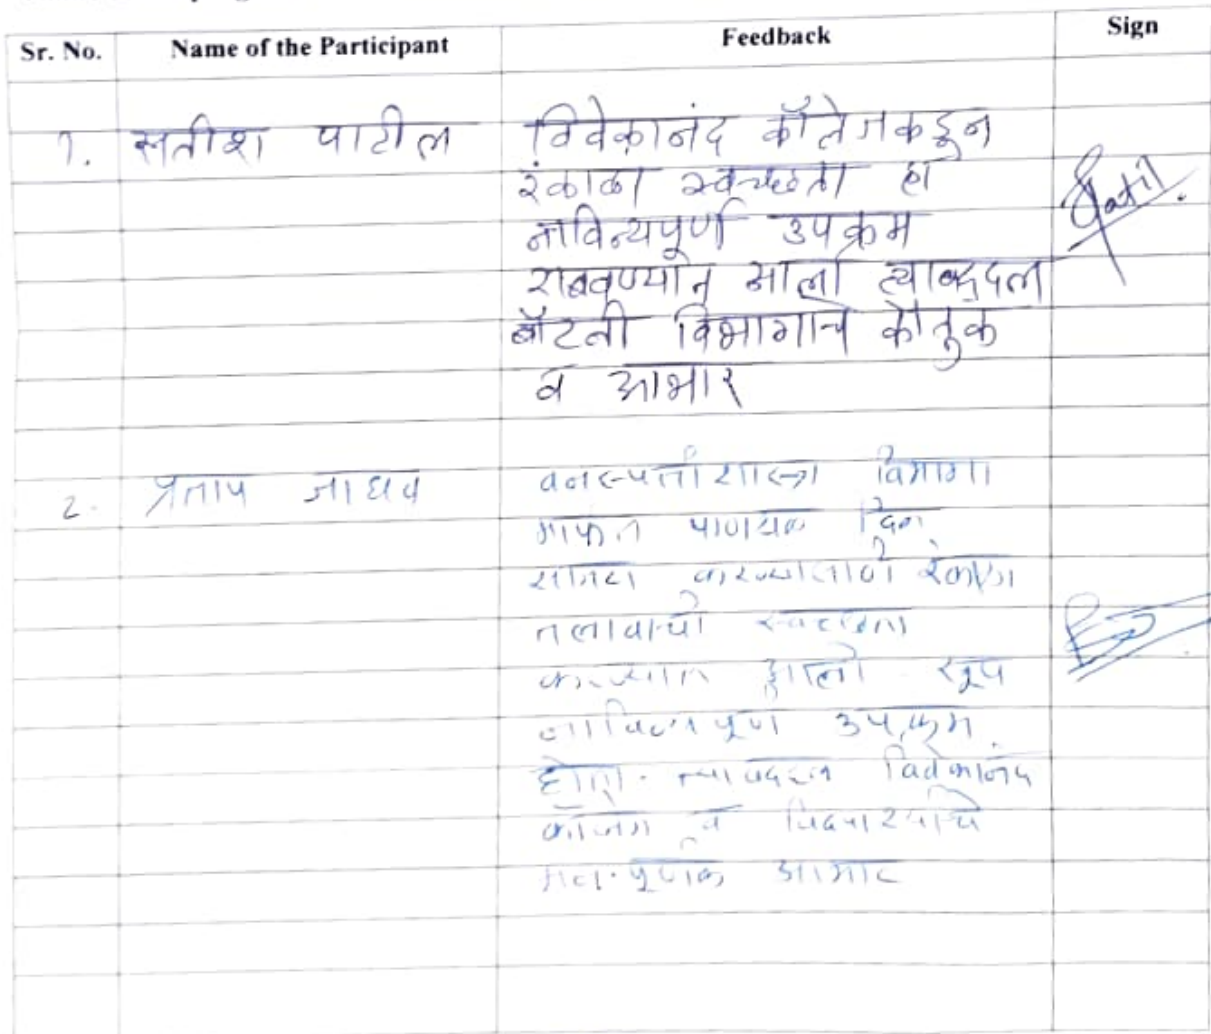 Sr. No. Name of the Participant Feedback Sign
१. सतीश पाटील विवेकानंद कॉलेजकडून
रंकाळा स्वच्छता हा
नाविन्यपूर्ण उपक्रम
राबवण्यात आला त्याबद्दल
बॉटनी विभागाचे कौतुक
व आभार
Patil
2. प्रताप जाधव वनस्पतीशास्त्र विभागा
मार्फत पाणथळ दिन
साजरा करण्यासाठी रंकाळा
तलावाची स्वच्छता
करण्यात आली खूप
नाविन्यपूर्ण उपक्रम
होता. त्याबद्दल विवेकानंद
कॉलेज व विद्यार्थ्यांचे
मनःपूर्वक आभार